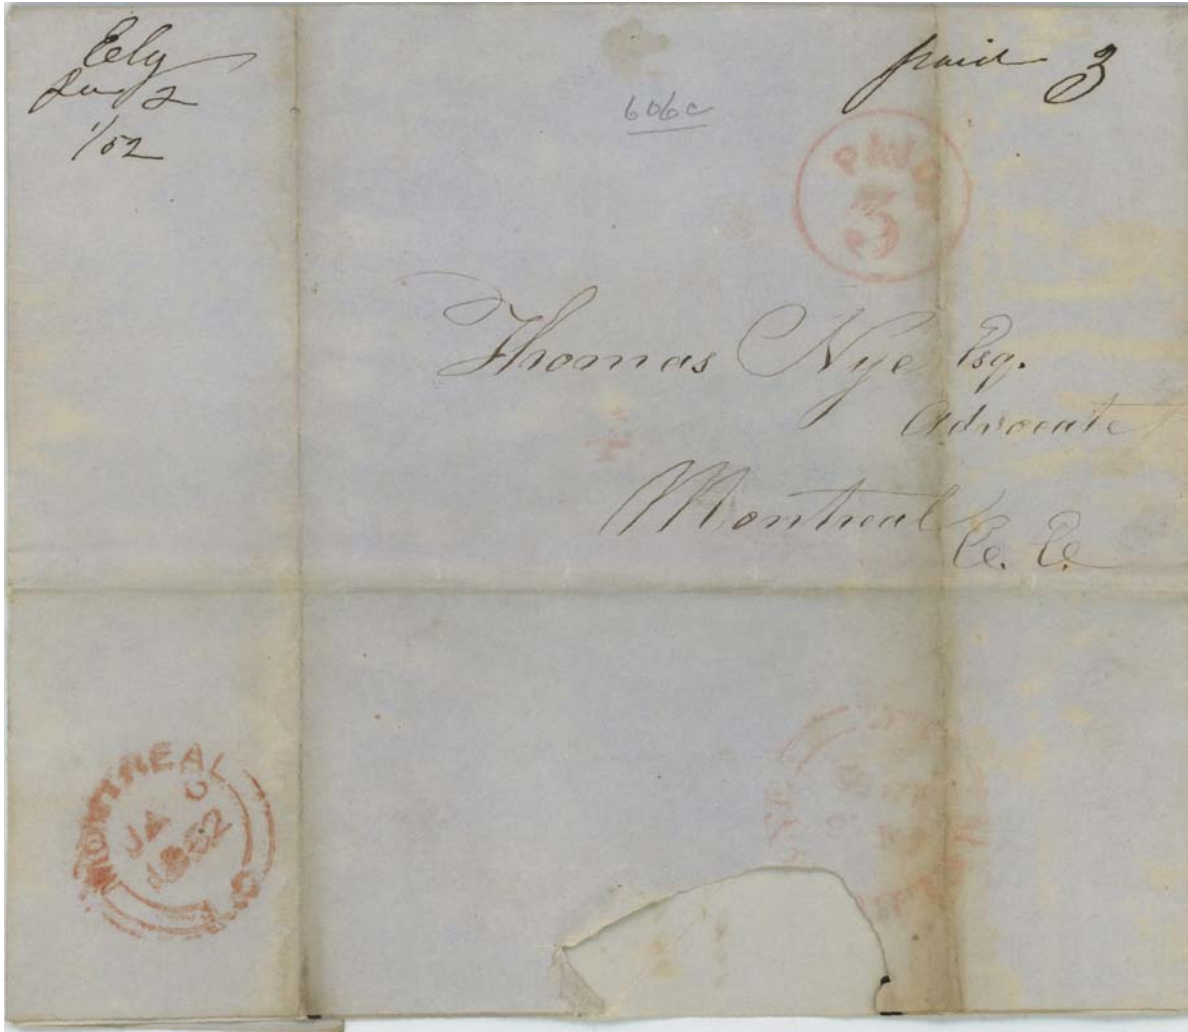 Ely
Jany 2
1/52
paid 3
606c
PAID
3
Thomas Nye Esq.
Advocate
Montreal
C. E.
MONTREAL
JA
1852